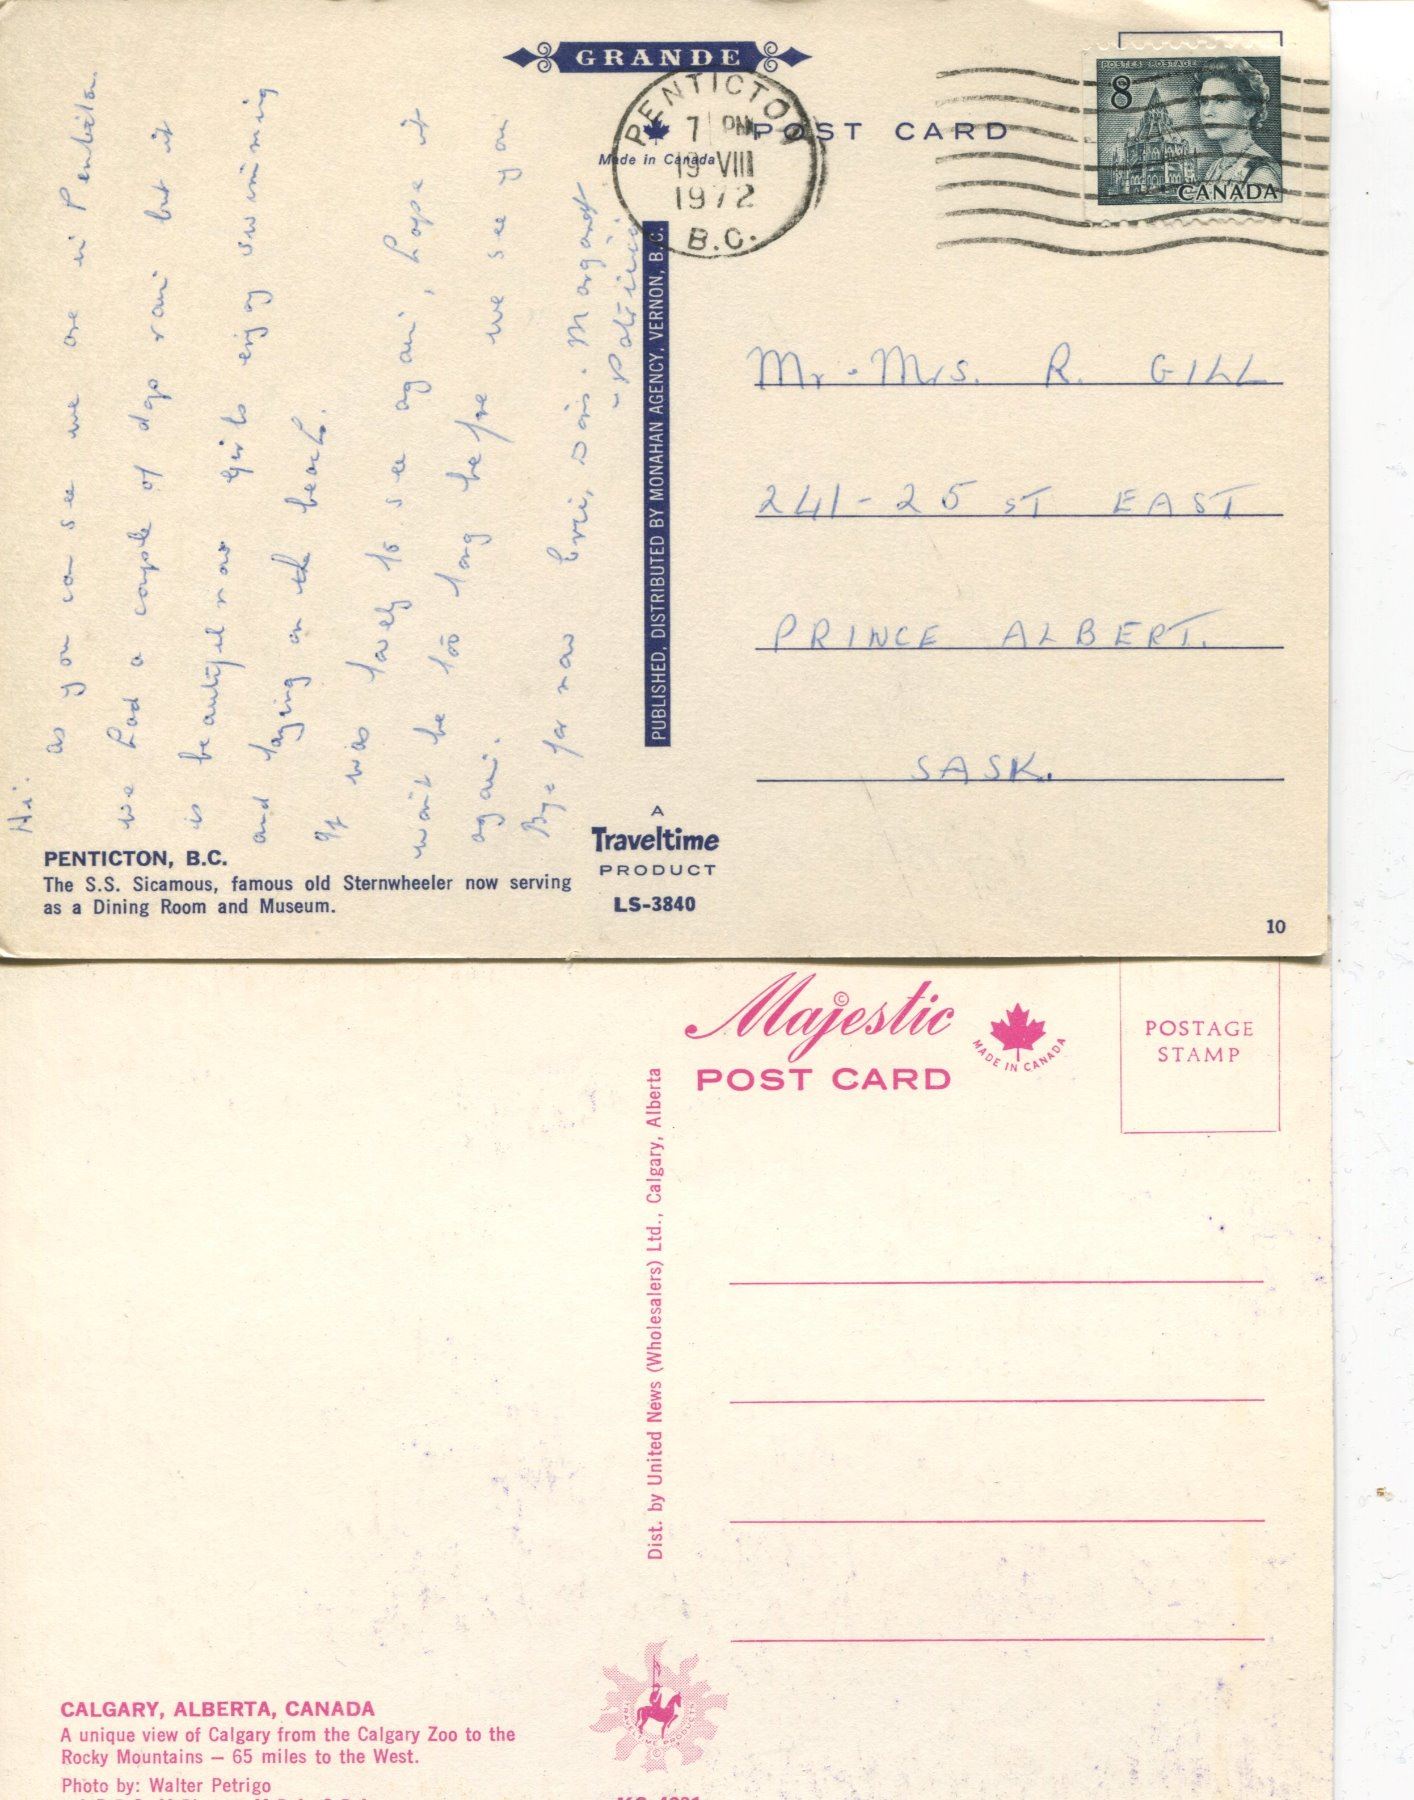 GRANDE
Made in Canada
POST CARD
PENTICTON
7 PM
19 VIII
1972
B.C.
POSTES POSTAGE
8
CANADA
Hi
as you can see we are in Penticton
we had a couple of days rain but it
is beautiful now girls enjoy swimming
and laying on the beach.
It was lovely to see again, hope it
won't be too long before we see you
again.
Bye for now Margaret
Patricia
PUBLISHED, DISTRIBUTED BY MONAHAN AGENCY, VERNON, B.C.
Mr. Mrs. R. GILL
241-25 ST EAST
PRINCE ALBERT.
SASK.
PENTICTON, B.C.
The S.S. Sicamous, famous old Sternwheeler now serving
as a Dining Room and Museum.
A
Traveltime
PRODUCT
LS-3840
10
Majestic
©
POST CARD
MADE IN CANADA
POSTAGE
STAMP
Dist. by United News (Wholesalers) Ltd., Calgary, Alberta
TRAVELTIME PRODUCTS
CALGARY, ALBERTA, CANADA
A unique view of Calgary from the Calgary Zoo to the
Rocky Mountains – 65 miles to the West.
Photo by: Walter Petrigo